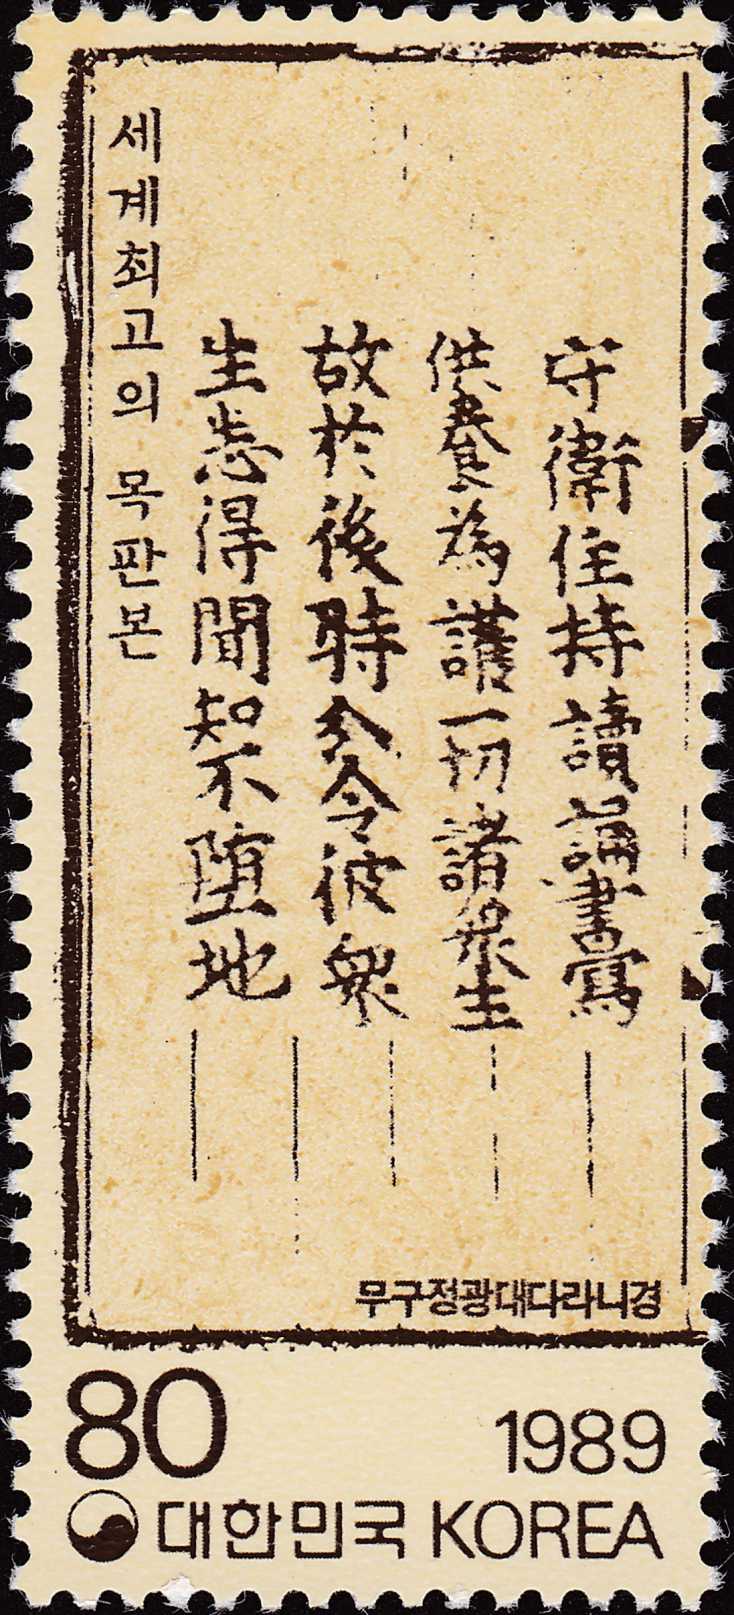 세계최고의 목판본
守衛住持讀誦書寫
供養為護一切諸衆生
故於後時分令彼衆
生悉得聞知不墮地
무구정광대다라니경
80 1989
대한민국 KOREA